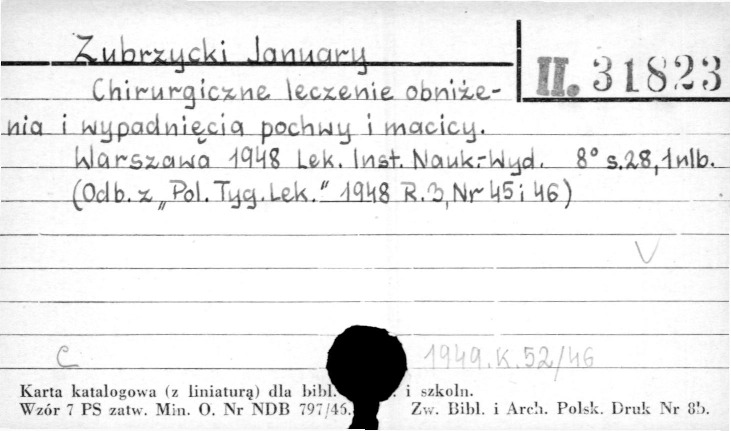 Zubrzycki January
II. 31823
Chirurgiczne leczenie obniże-
nia i wypadnięcia pochwy i macicy.
Warszawa 1948 Lek. Inst. Nauk.-Wyd. 8° s.28, 1 nlb.
(Odb. z „Pol. Tyg. Lek." 1948 R.3, Nr 45 i 46)
V
C 1949.K.52/46
Karta katalogowa (z liniaturą) dla bibl. i szkoln.
Wzór 7 PS zatw. Min. O. Nr NDB 797/45. Zw. Bibl. i Arch. Polsk. Druk Nr 8b.